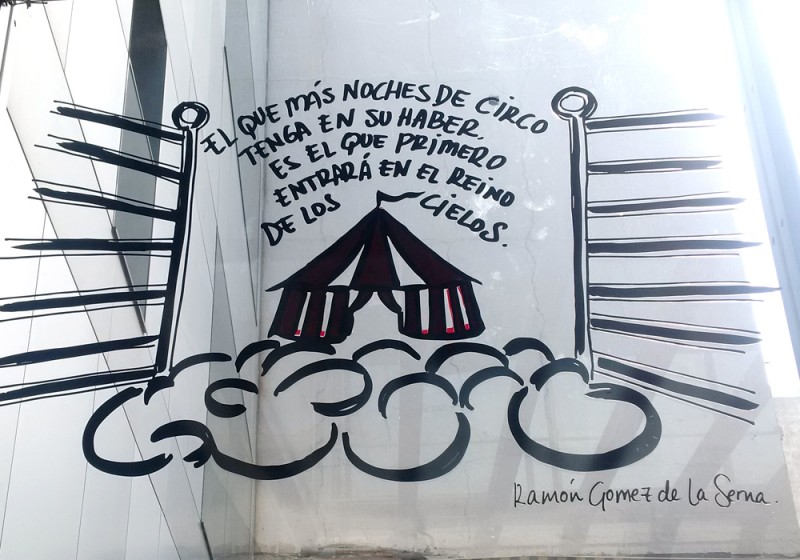 EL QUE MÁS NOCHES DE CIRCO
TENGA EN SU HABER,
ES EL QUE PRIMERO
ENTRARÁ EN EL REINO
DE LOS CIELOS.
Ramón Gomez de la Serna.